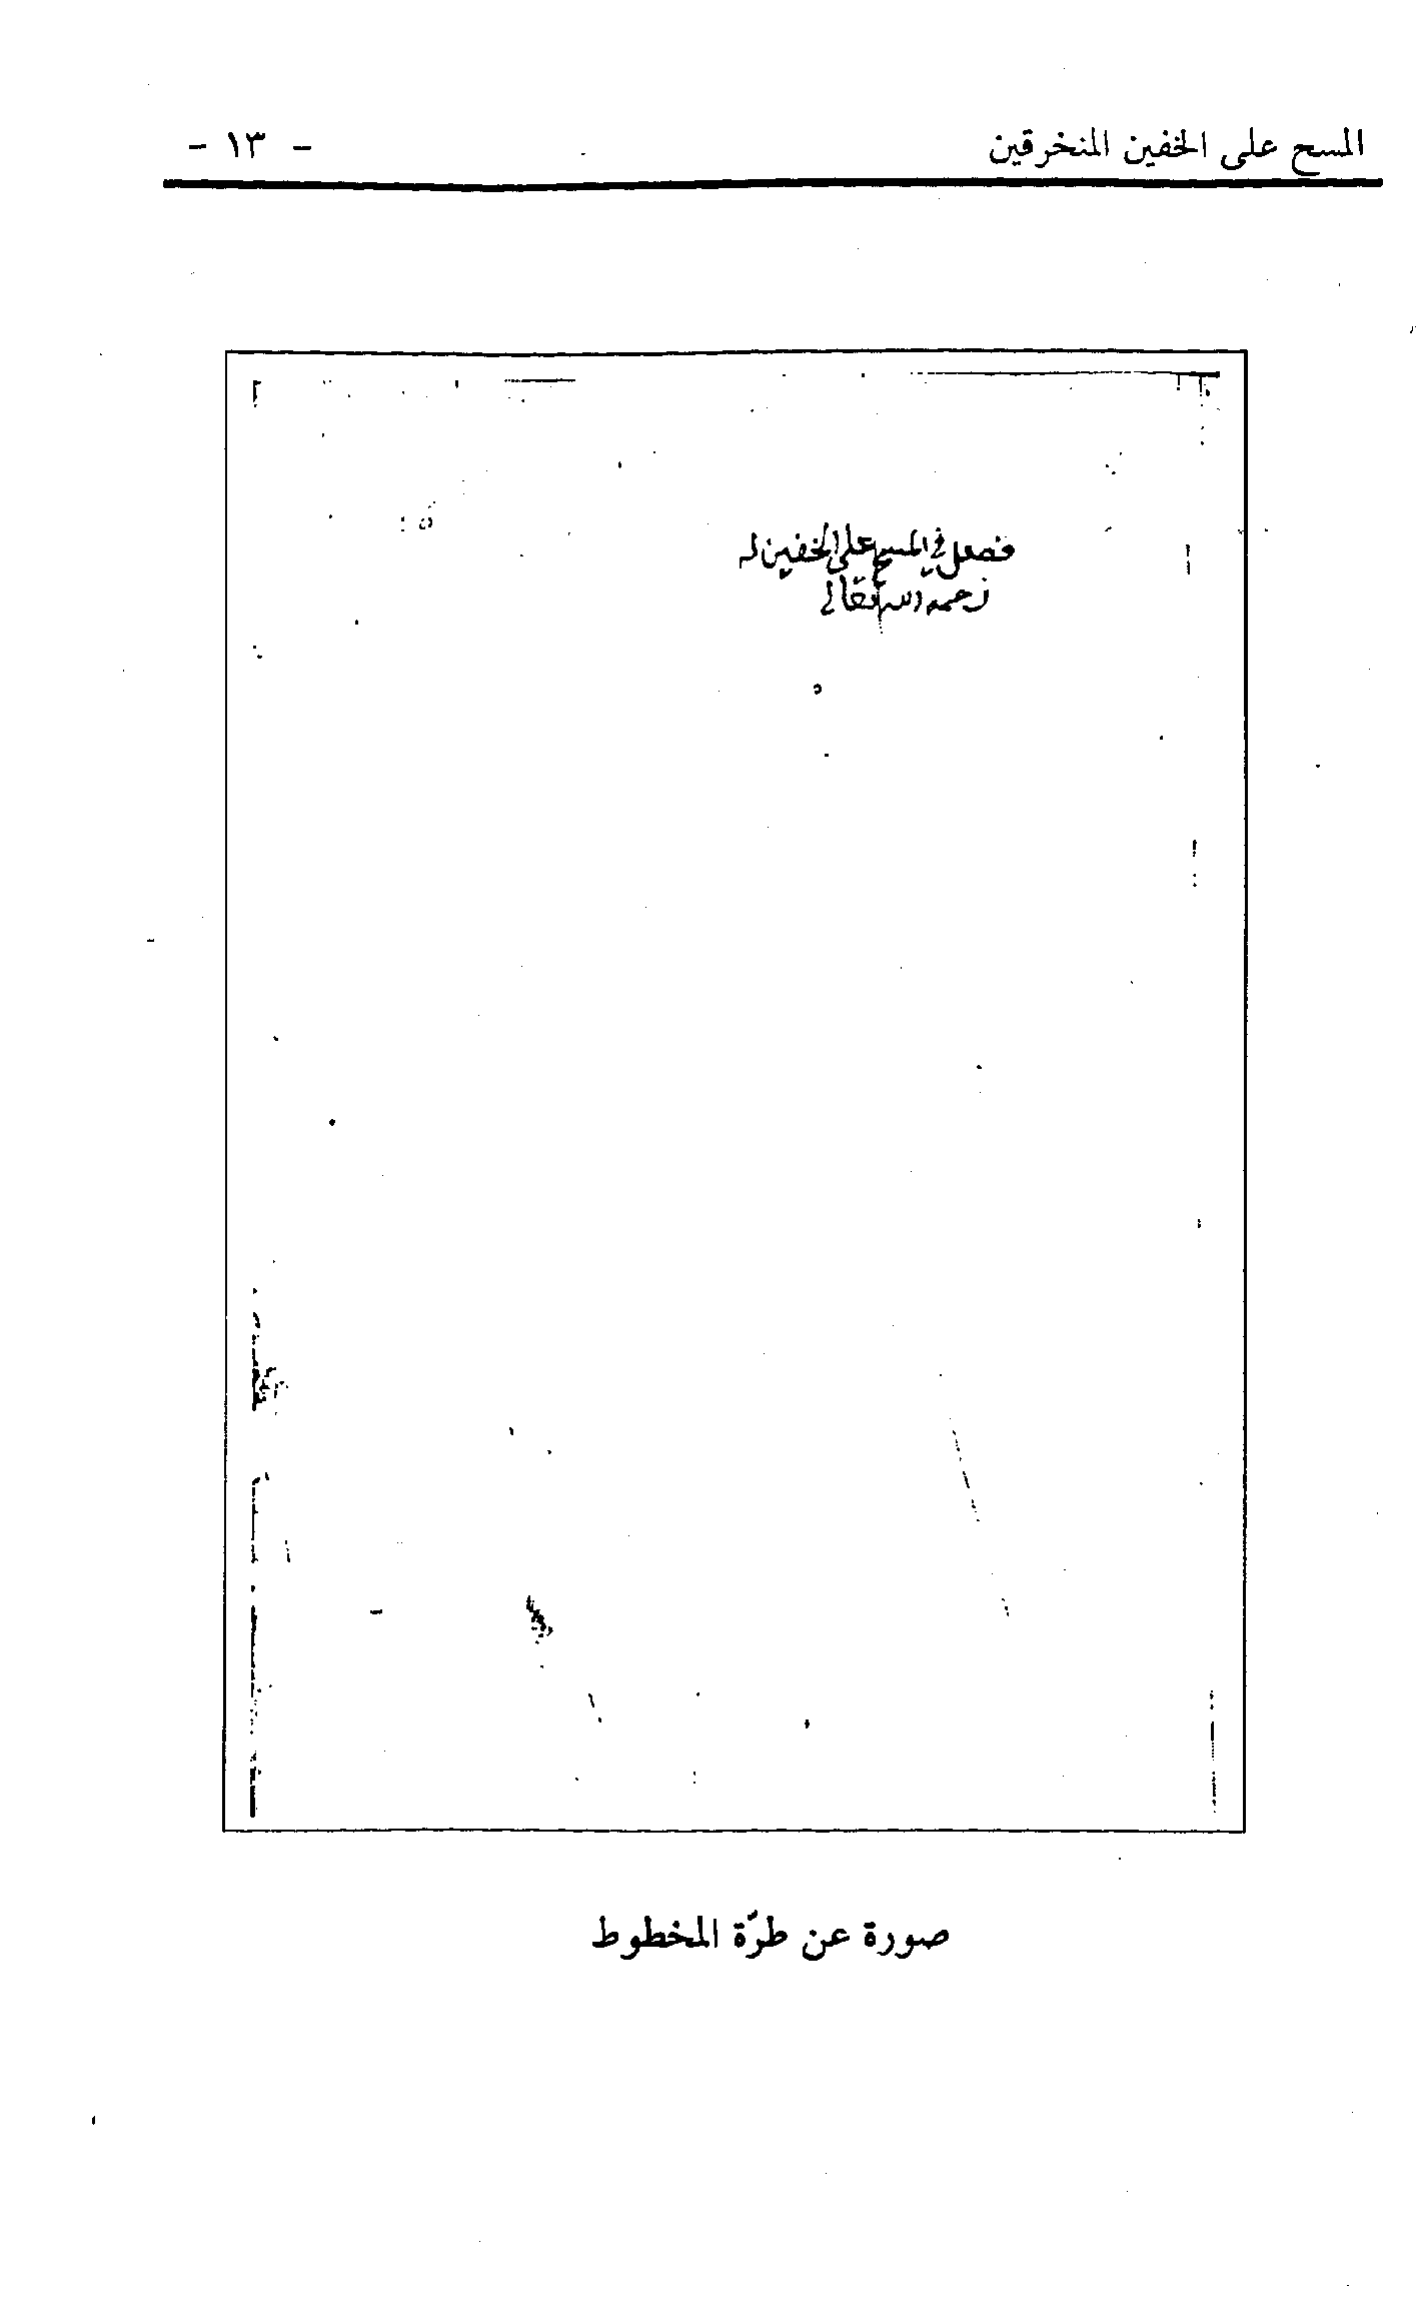 المسح على الخفين المنخرقين
- ١٣ -
فصل في المسح على الخفين له
رحمه الله تعالى
صورة عن طرّة المخطوط